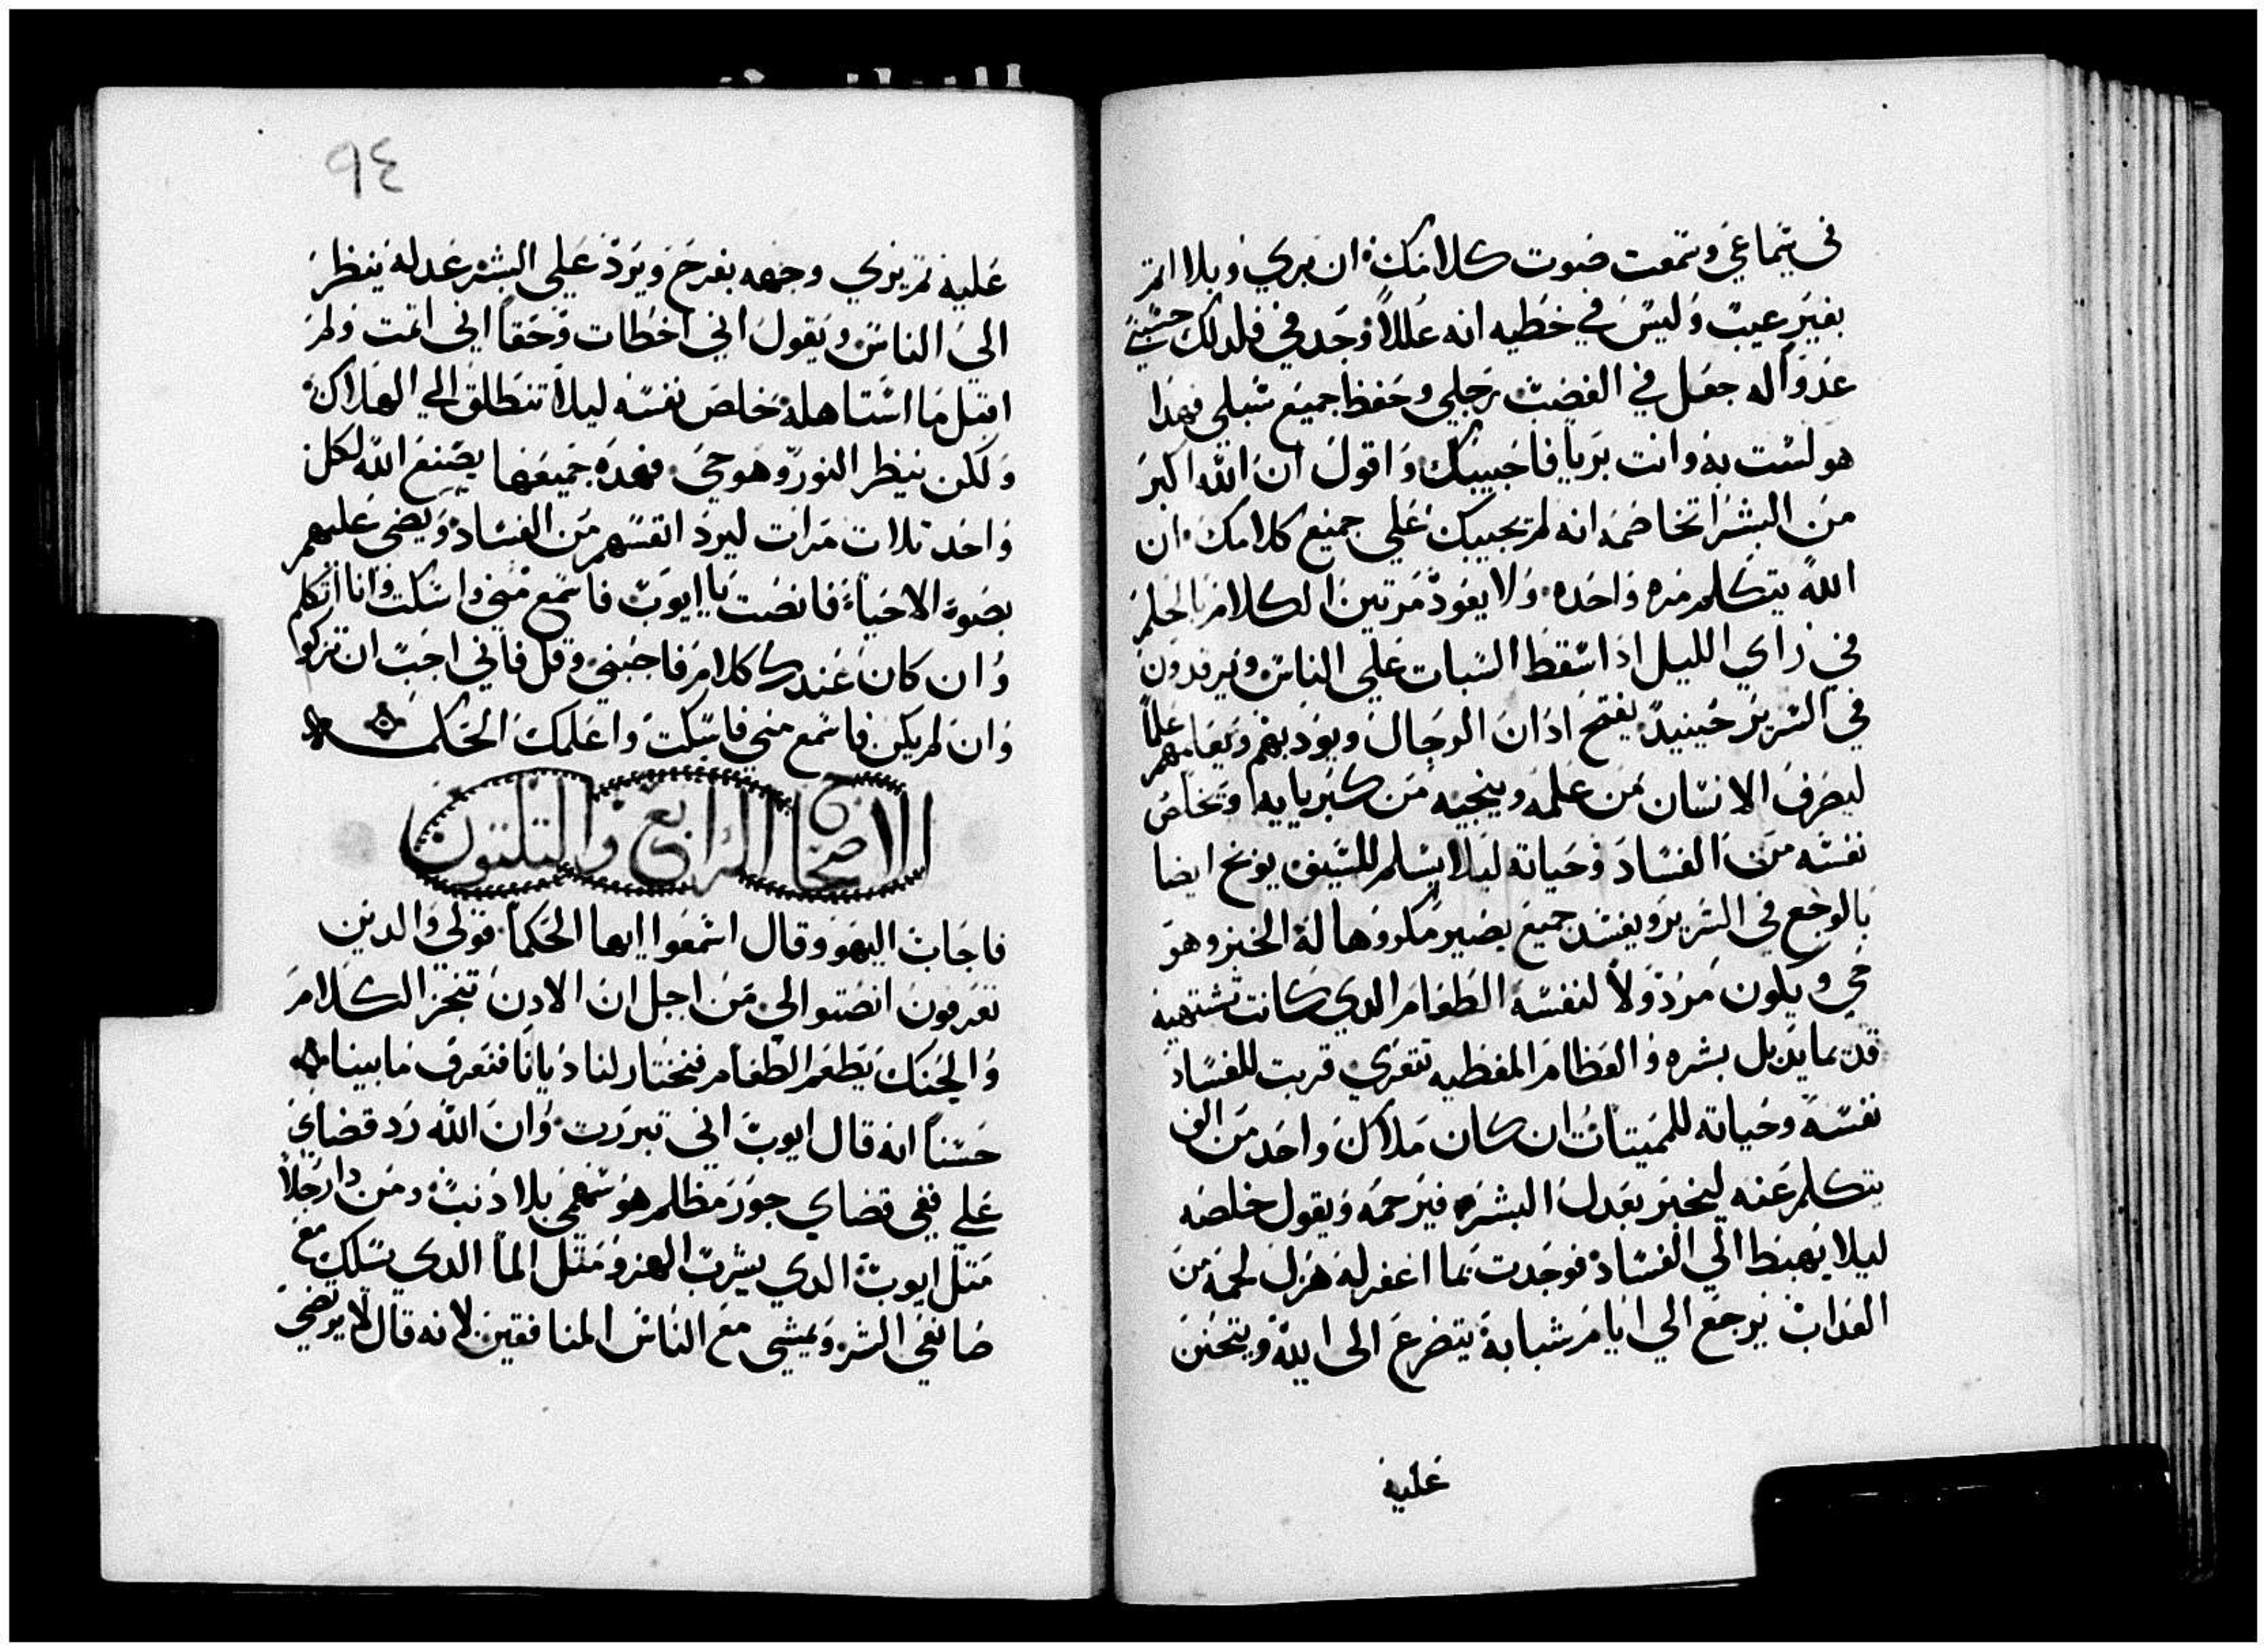 في سماعي وسمعت صوت كلامك ان بري وبلا اثم
بغير عيب وليس في خطيه انه عللاً وجد في فلدلك حسبني
عدوا له جعل في الغضب رجلي وحفظ جميع سبلي فهدا
هو لست به وانت بريا فاجيبك واقول ان الله اكبر
من البشر اتخاصمه انه لم يجيبك علي جميع كلامك ان
الله يتكلم مره واحده ولا يعود مرتين الكلام بالحلم
في راي الليل ادا سقط السبات علي الناس ويرقدون
في السرير حينيد يفتح ادان الرجال ويودبهم ويعلمهم علما
ليصرف الانسان من علمه وينجيه من كبريايه وتخلص
نفسه من الفساد وحياته ليلا يسلم للسيف يوبخ ايضا
بالوجع في السرير ويفسد جميع يصير مكروها له الخبز وهو
حي ويكون مردولاً لنفسه الطعام الدي كانت تشتهيه
قديما يدبل بشره والعظام المغطيه تتعري قربت للفساد
نفسه وحياته للميتات ان كان ملاك واحد من الف
يتكلم عنه ليخبر بعدل البشر فيرحمه ويقول خلصه
ليلا يهبط الي الفساد فوجدت بما اغفر له هزل لحمه من
العداب يرجع الي ايام شبابه يتضرع الى الله ويتحنن
عليه
٩٤
عليه ثم يري وجهه بفرح ويرد علي البشر عدله ينظر
الى الناس ويقول اني اخطات وحقاً اني اتمت ولم
اقبل ما استاهله خلص نفسه ليلا تنطلق الي الهلاك
ولكن ينظر النور وهو حي فهده جميعها يصنع الله لكل
واحد تلات مرات ليرد انفسهم من الفساد ويضي عليهم
بضوة الاحياة فانصت يا ايوب فاسمع مني واسكت وانا اتكلم
وان كان عندك كلام فاجبني وقل فاني احب ان تزكوا
وان لم يكن فاسمع مني فاسكت واعلمك الحكمه
الاصحاح الرابع والتلتون
فاجاب اليهو وقال اسمعوا ايها الحكما قولي والدين
تعرفون انصتوا الي من اجل ان الادن تنجز الكلام
والحنك يطعم الطعام فنختار لنا ديانا فنعرف ما بيننا
حسناً انه قال ايوب اني تبررت وان الله رد قضاي
علي ففي قضاي جور مظلم هو سهمي بلا ذنب ومن دا رجلاً
متل ايوب الدي يشرب الهزو متل الماً الدي سلك مع
صانعي الشر ويمشي مع الناس المنافقين لانه قال لا يرتضي